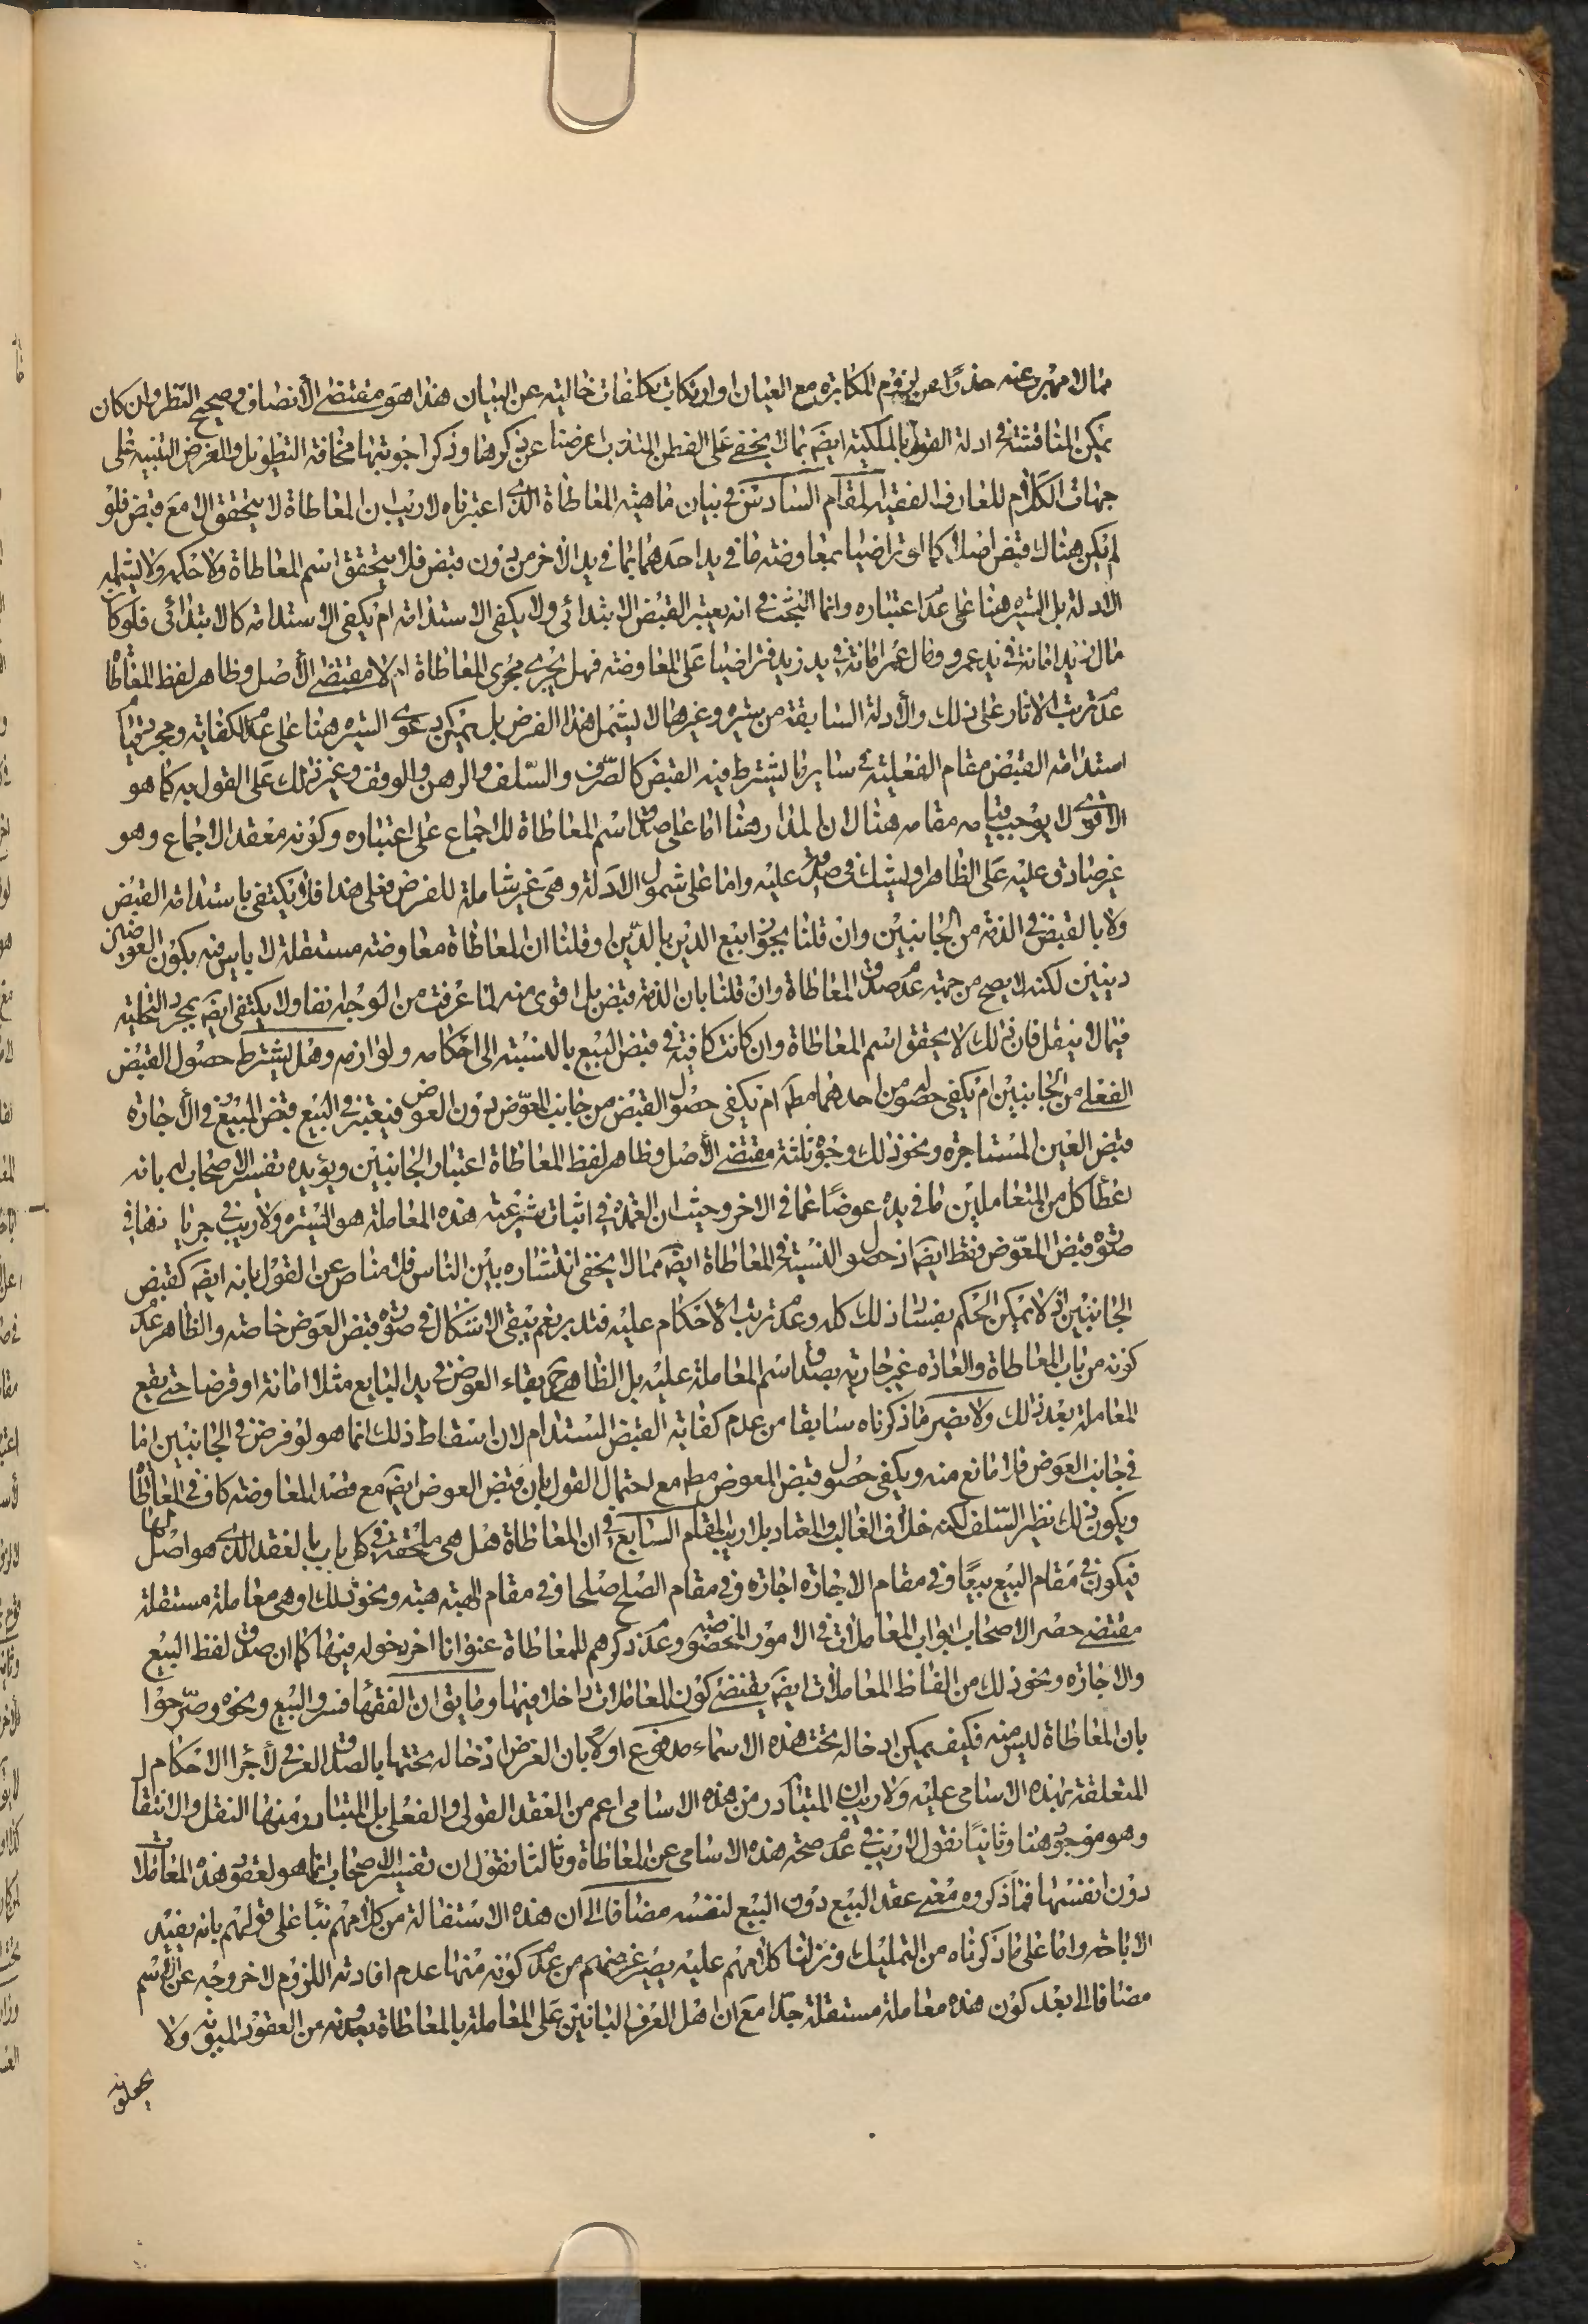 مما لا مهرب عنه حذرا عن لزوم المكابرة مع العيان او ارتكاب تكلفات خالية عن البيان هذا هو مقتضى الأنصاف وصحيح النظر وان كان
يمكن المناقشة في ادلة القول بالملكية ايضَ بما لا يخفى على الفطن المتدرب اعرضنا عن ذكرها وذكر اجوبتها مخافة التطويل والغرض التنبيه على
جهات الكلام للعارف الفقيه المقام السادس في بيان ماهية المعاطاة الذي اعتبرناه لا ريب ان المعاطاة لا يتحقق الا مع قبض فلو
لم يكن هناك قبض اصلا كما لو تراضيا بمعاوضة ما في يد احدهما بما في يد الاخر من دون قبض فلا يتحقق اسم المعاطاة ولا حكمه ولا يشمله
الادلة بل السيرة هنا على عدم اعتباره وانما البحث في انه يعتبر القبض الابتدائي ولا يكفي الاستدامة ام يكفي الاستدامة كالابتدائي فلو كا
مال زيد امانة في يد عمرو ومال عمرو امانة في يد زيد فتراضيا على المعاوضة فهل يجري مجرى المعاطاة ام لا مقتضى الأصل وظاهر لفظ المعاطاة
عدم ترتب الاثار على ذلك والأدلة السابقة من سيرة وغيرها لا يشمل هذا الفرض بل يمكن دعوى السيرة هنا على عدم الكفاية ومجرد قيام
استدامة القبض مقام الفعلية في ساير ما يشترط فيه القبض كالصرف والسلف والرهن والوقف وغير ذلك على القول به كما هو
الاقوى لا يوجب قيامه مقامه هنا لان المدار هنا اما على صدق اسم المعاطاة للاجماع على اعتباره وكونه معقد الاجماع وهو
غير صادق عليه على الظاهر او يشك في صدقه عليه واما على شمول الادلة وهي غير شاملة للفرض فعلى هذا فلا يكتفى باستدامة القبض
ولا بالقبض في الذمة من الجانبين وان قلنا بجواز بيع الدين بالدين او قلنا ان المعاطاة معاوضة مستقلة لا باس فيه بكون العوضين
دينين لكنه لا يصح من جهة عدم صدق المعاطاة وان قلنا بان الذمة قبض بل اقوى منه لما عرفت من الوجه انفا ولا يكتفى ايضَ بمجرد التخلية
فيما لا ينقل فان ذلك لا يحقق اسم المعاطاة وان كانت كافية في قبض البيع بالنسبة الى احكامه ولوازمه وهل يشترط حصول القبض
الفعلي من الجانبين ام يكفي حصوله من احدهما مطَ ام يكفي حصول القبض من جانب المعوّض دون العوض فيعتبر في البيع قبض المبيع وفي الأجارة
قبض العين المستاجرة ونحو ذلك وجوه ثلثة مقتضى الأصل وظاهر لفظ المعاطاة اعتبار الجانبين ويؤيده تفسير الاصحاب له بانه
اعطأ كل من المتعاملين ما في يده عوضًا عما في الاخر وحيث ان العمدة في اثبات شرعية هذه المعاملة هو السيرة ولا ريب في جريانها في
صورة قبض المعوّض فقط ايضَ اذ حصول النسية في المعاطاة ايضَ مما لا يخفى انتشاره بين الناس فلا مناص عن القول بانه ايضَ كقبض
الجانبين اذ لا يمكن الحكم بفساد ذلك كله وعدم ترتب الأحكام عليه فتدبر نعم يبقى الاشكال في صورة قبض العوض خاصة والظاهر عدم
كونه من باب المعاطاة والعادة غير جارية بصدق اسم المعاملة عليه بل الظاهر ح بقاء العوض في يد البايع مثلا امانة او قرضا حتى يقع
المعاملة بعد ذلك ولا يضير ما ذكرناه سابقا من عدم كفاية القبض المستدام لان اسقاط ذلك انما هو لو فرض في الجانبين اما
في جانب العوض فلا مانع منه ويكفي حصول قبض المعوض مطَ مع احتمال القول بان قبض العوض ايضَ مع قصد المعاوضة كاف في المعاطاة
ويكون ذلك نظير السلف لكنه خلاف الغالب والمعتاد بلا ريب المقام السابع في ان المعاطاة هل هي ملحقة في كل باب بالعقد الذي هو اصل لها
فيكون في مقام البيع بيعًا وفي مقام الاجارة اجارة وفي مقام الصلح صلحا وفي مقام الهبة هبة ونحو ذلك او هي معاملة مستقلة
مقتضى حصر الاصحاب ابواب المعاملات في الامور المخصوصة وعدم ذكرهم للمعاطاة عنوانا اخر دخوله فيها كما ان صدق لفظ البيع
والاجارة ونحو ذلك من الفاظ المعاملات ايضَ يقتضى كون المعاطات داخلا فيها وما يق ان الفقها فسروا البيع ونحوه وصرحوا
بان المعاطاة ليس منه فكيف يمكن ادخاله تحت هذه الاسماء مدفوع اولا بان الغرض ادخاله تحتها بالصدق العرفي لأجرا الاحكام
المتعلقة بهذه الاسامي عليه ولا ريب ان المتبادر من هذه الاسامي اعم من العقد القولي والفعلي بل المتبادر منها النقل والانتقال
وهو موجود هنا وثانيًا نقول لا ريب في عدم صحة هذه الاسامي عن المعاطاة وثالثا نقول ان تفسير الاصحاب انما هو لعقود هذه المعاملات
دون انفسها فما ذكروه معنى عقد البيع دون البيع لنفسه مضافا الى ان هذه الاستفالة من كلامهم بنأ على قولهم بانه يفيد
الاباحة واما على ما ذكرناه من التمليك ونزلنا كلامهم عليه يصير غرضهم من عدم كونه منها عدم افادته اللزوم لا خروجه عن الاسم
مضافا الى بعد كون هذه معاملة مستقلة جدا مع ان اهل العرف البانين على المعاملة بالمعاطاة يعدونه من العقود المبوبة ولا
يجعلونه